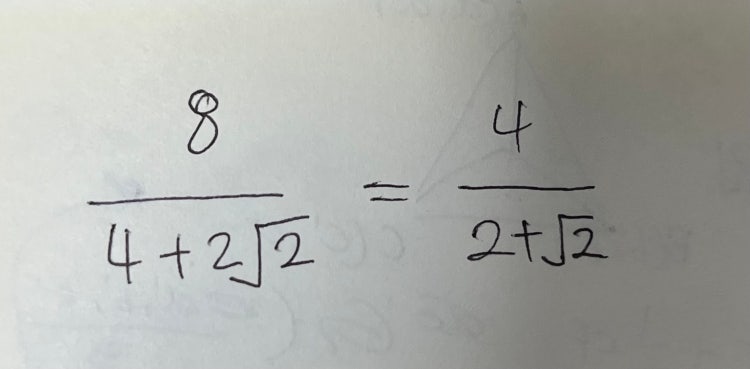 8/(4+2√2) = 4/(2+√2)